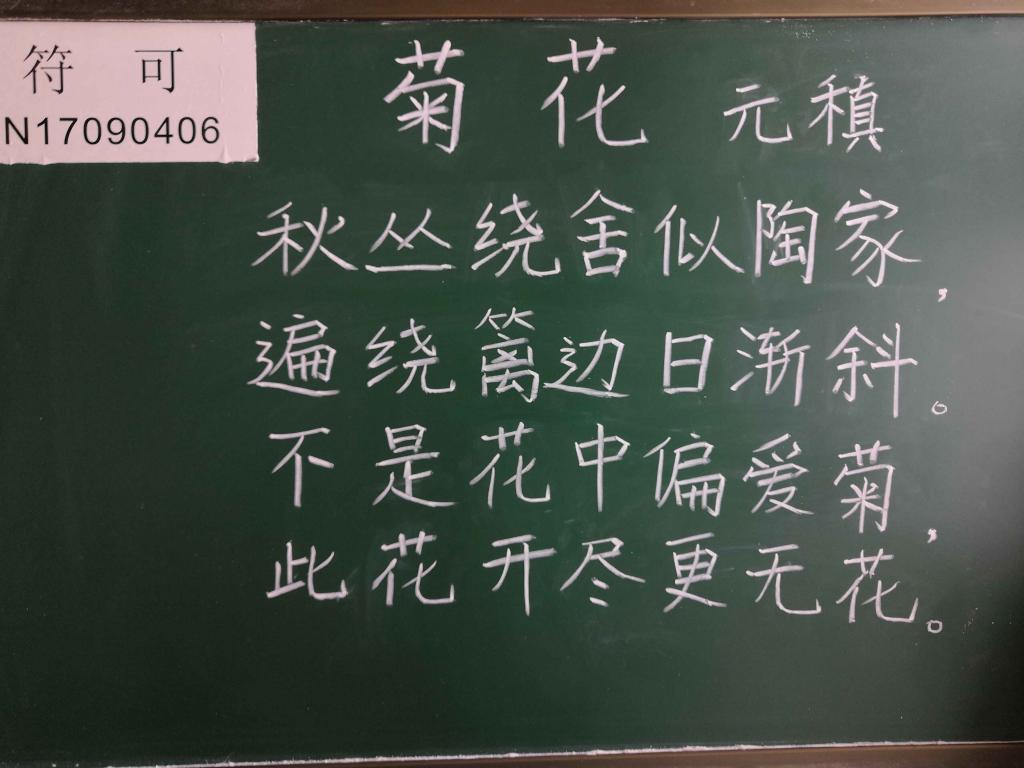 符 可
N17090406
菊 花 元稹
秋丛绕舍似陶家，
遍绕篱边日渐斜。
不是花中偏爱菊，
此花开尽更无花。